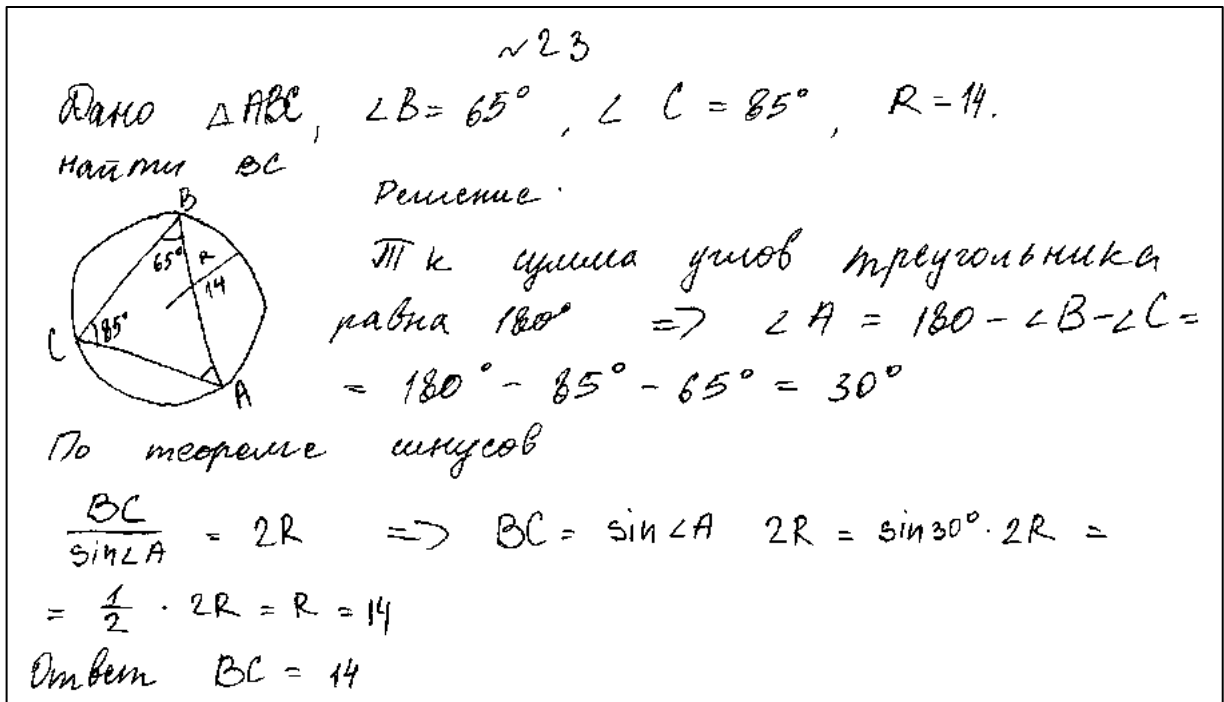 №23
Дано △ABC, ∠B = 65°, ∠ C = 85°, R = 14.
Найти BC
B
65°
R
14
C
85°
A
Решение.
Т к сумма углов треугольника
равна 180° => ∠A = 180 - ∠B - ∠C =
= 180° - 85° - 65° = 30°
По теореме синусов
BC/sin∠A = 2R => BC = sin∠A 2R = sin30° · 2R =
= 1/2 · 2R = R = 14
Ответ BC = 14